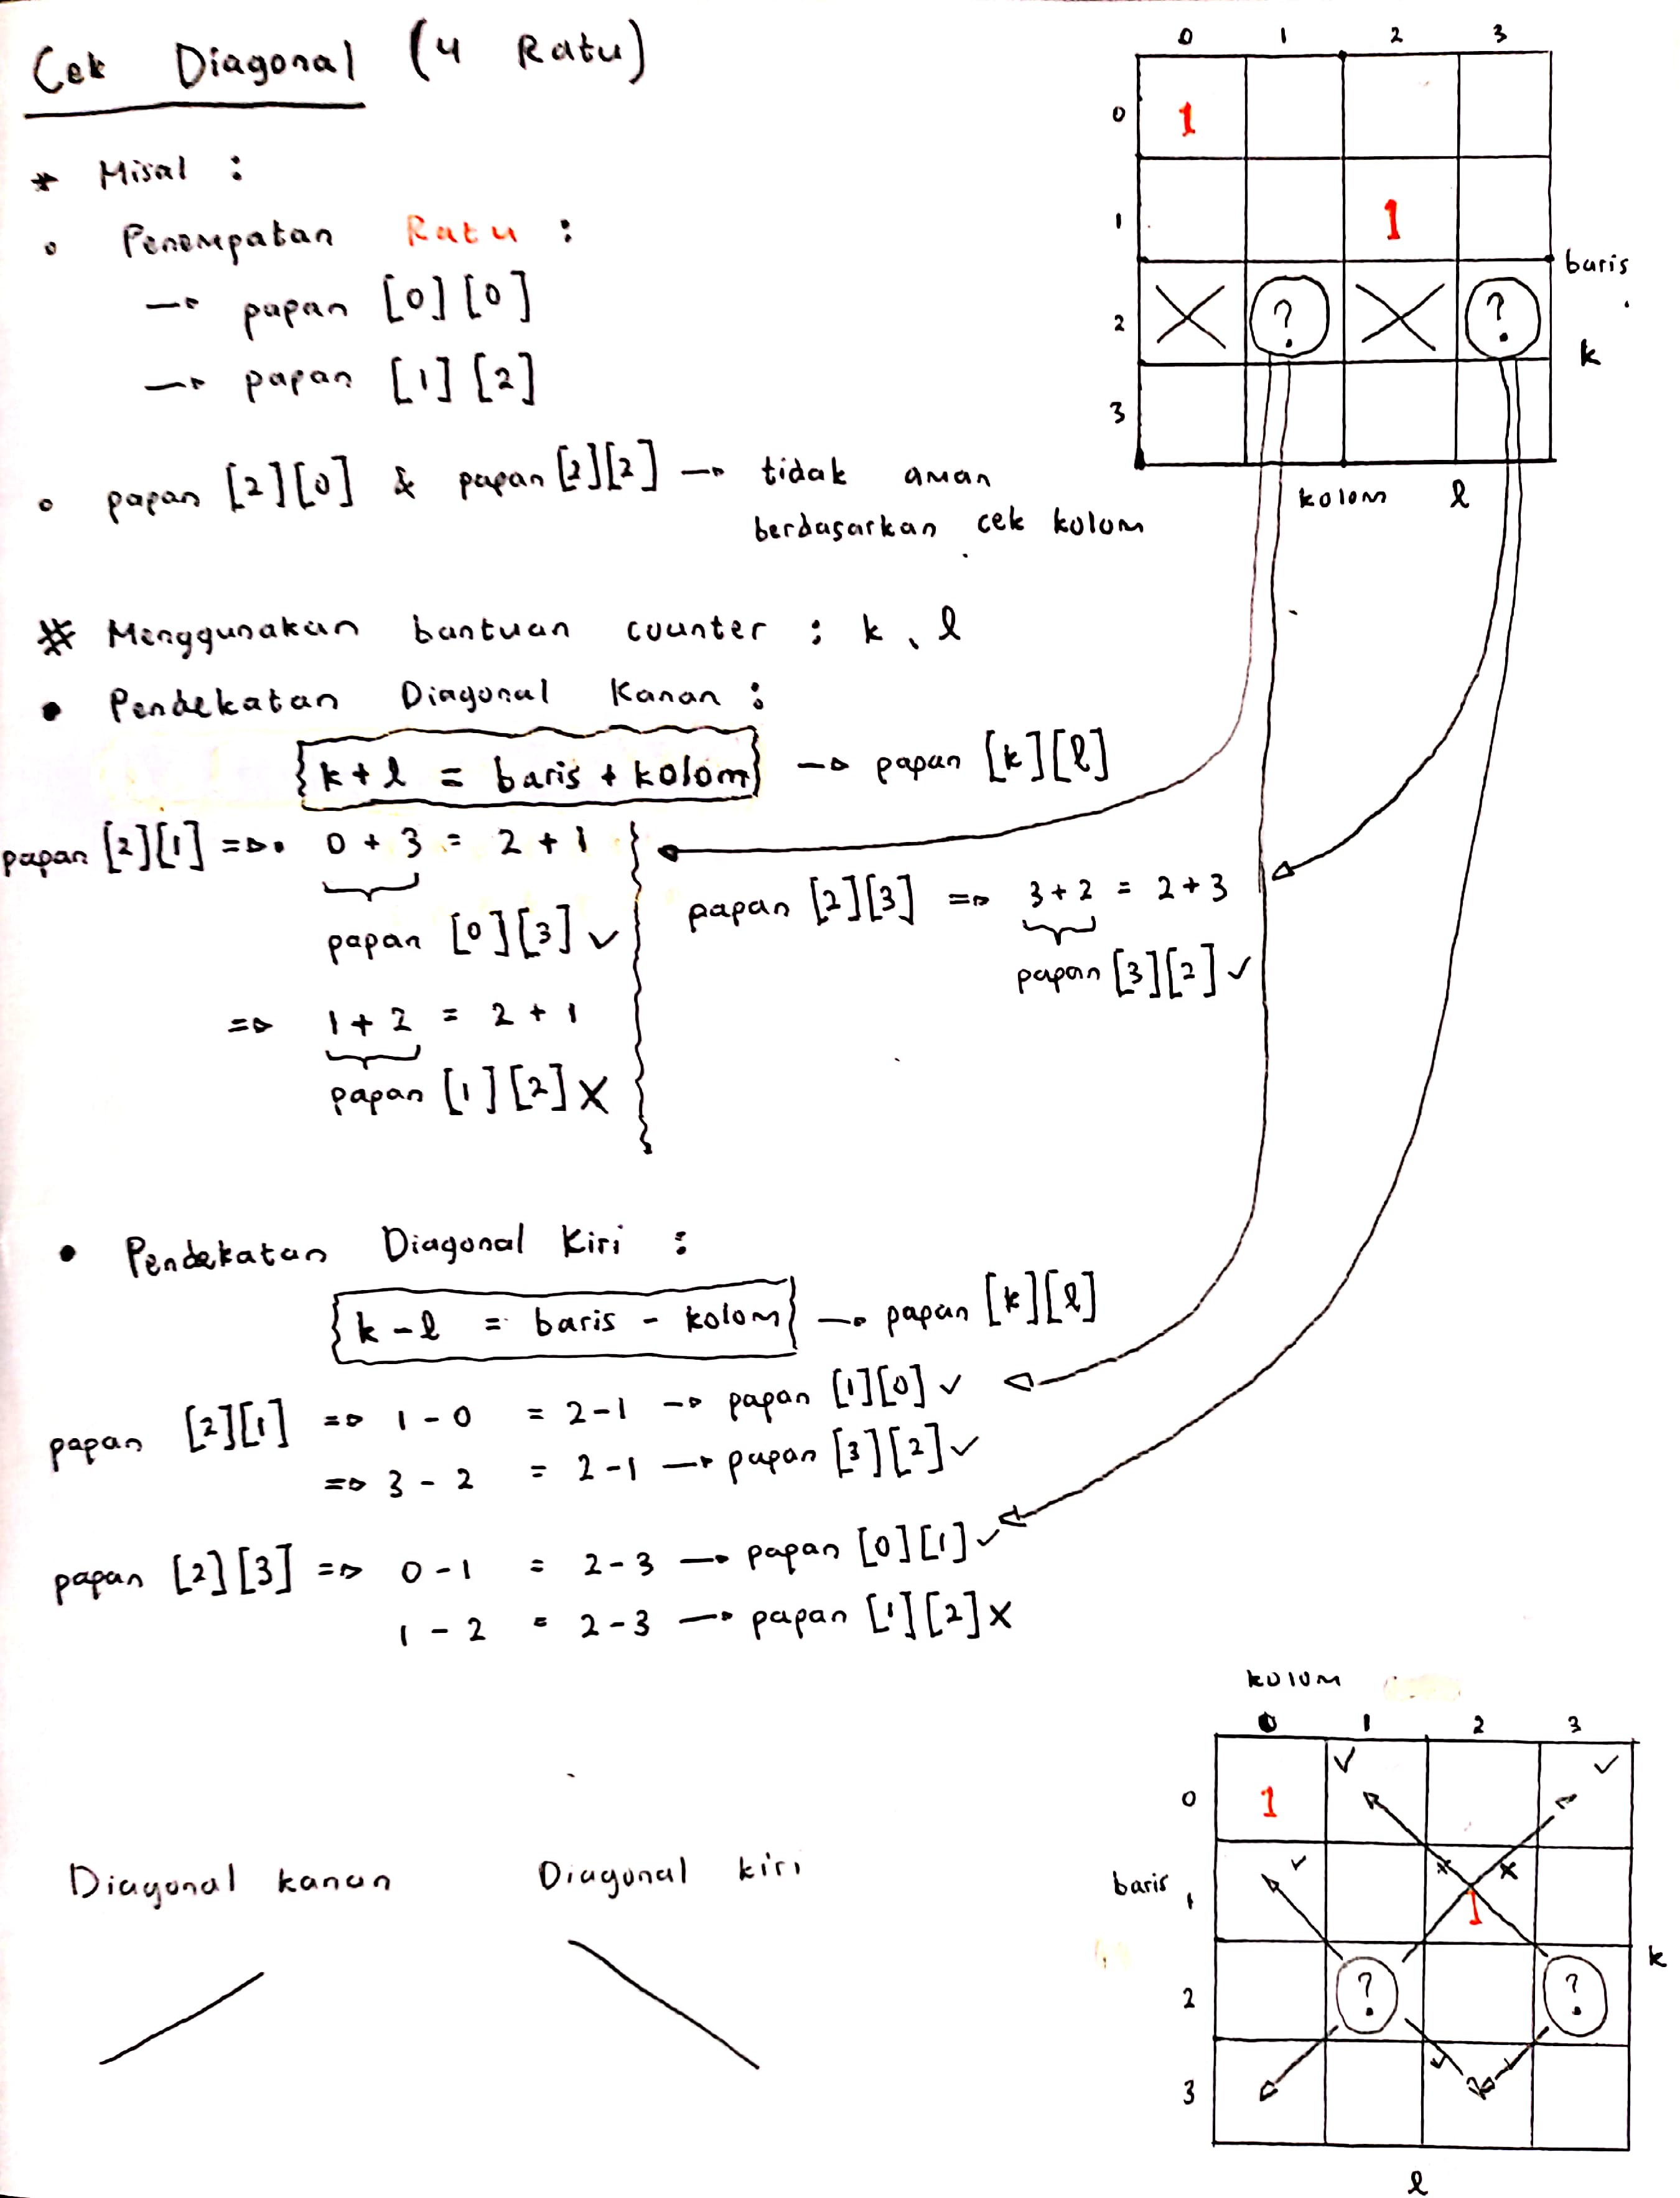 Cek Diagonal (4 Ratu)
* Misal :
Penempatan Ratu :
→ papan [0][0]
→ papan [1][2]
papan [2][0] & papan [2][2] → tidak aman
berdasarkan cek kolom
0 1 2 3
0 1
1 1
baris
2 ? ?
k
3
kolom l
* Menggunakan bantuan counter : k, l
• Pendekatan Diagonal Kanan :
k + l = baris + kolom → papan [k][l]
papan [2][1] => 0 + 3 = 2 + 1
papan [0][3] ✓
=> 1 + 2 = 2 + 1
papan [1][2] X
papan [2][3] => 3 + 2 = 2 + 3
papan [3][2] ✓
• Pendekatan Diagonal Kiri :
k - l = baris - kolom → papan [k][l]
papan [2][1] => 1 - 0 = 2 - 1 → papan [1][0] ✓
=> 3 - 2 = 2 - 1 → papan [3][2] ✓
papan [2][3] => 0 - 1 = 2 - 3 → papan [0][1] ✓
1 - 2 = 2 - 3 → papan [1][2] X
Diagonal kanan
Diagonal kiri
kolom
0 1 2 3
0 1
baris 1 1
k
2 ? ?
3
l